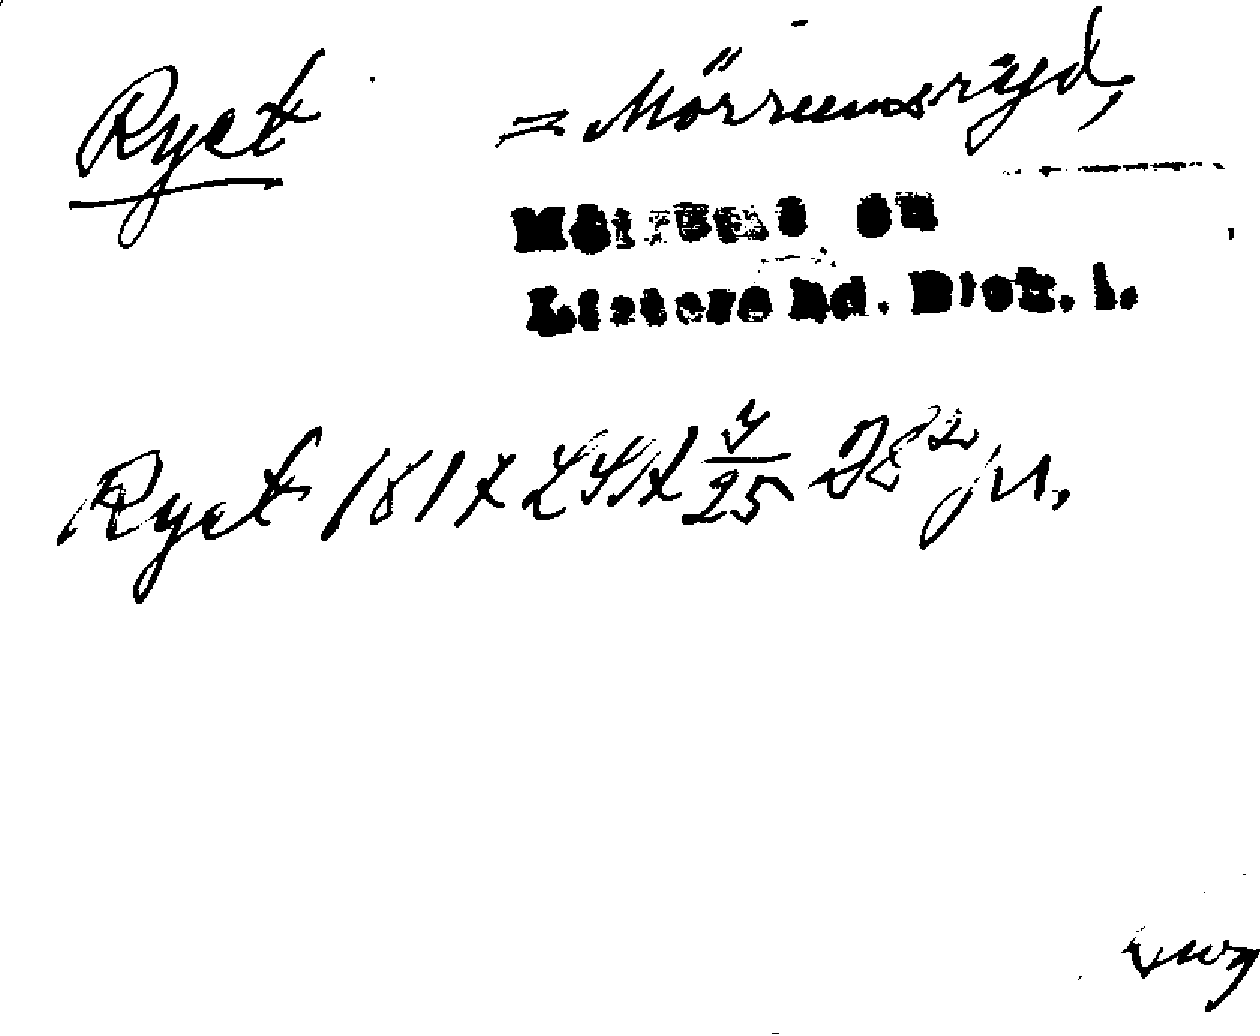 Ryet = Mörrumsryd,
Mörrums sn
Listers hd. Blek. l.
Ryet 1817 LSA 4/25 282 ju.